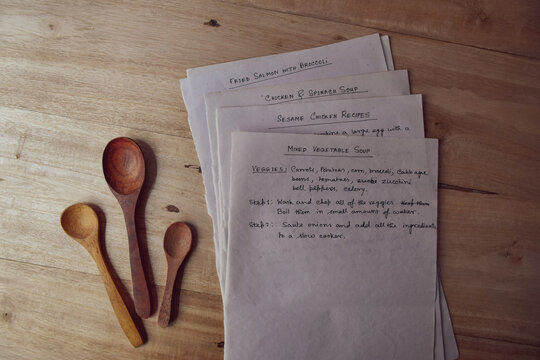 FRIED SALMON WITH BROCCOLI
CHICKEN & SPINACH SOUP
SESAME CHICKEN RECIPES
a large egg with a
MIXED VEGETABLE SOUP
VEGGIES: Carrots, Potatoes, corn, broccoli, Cabbage
beans, tomatoes, zucchini
bell peppers, celery.
Step 1: Wash and chop all of the veggies
Boil them in small amounts of water.
Step 2: Saute onions and add all the ingredients
to a slow cooker.